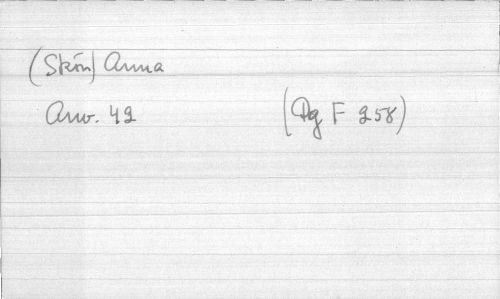 (Skön) Anna
Anv. 42 (Dg F 258)